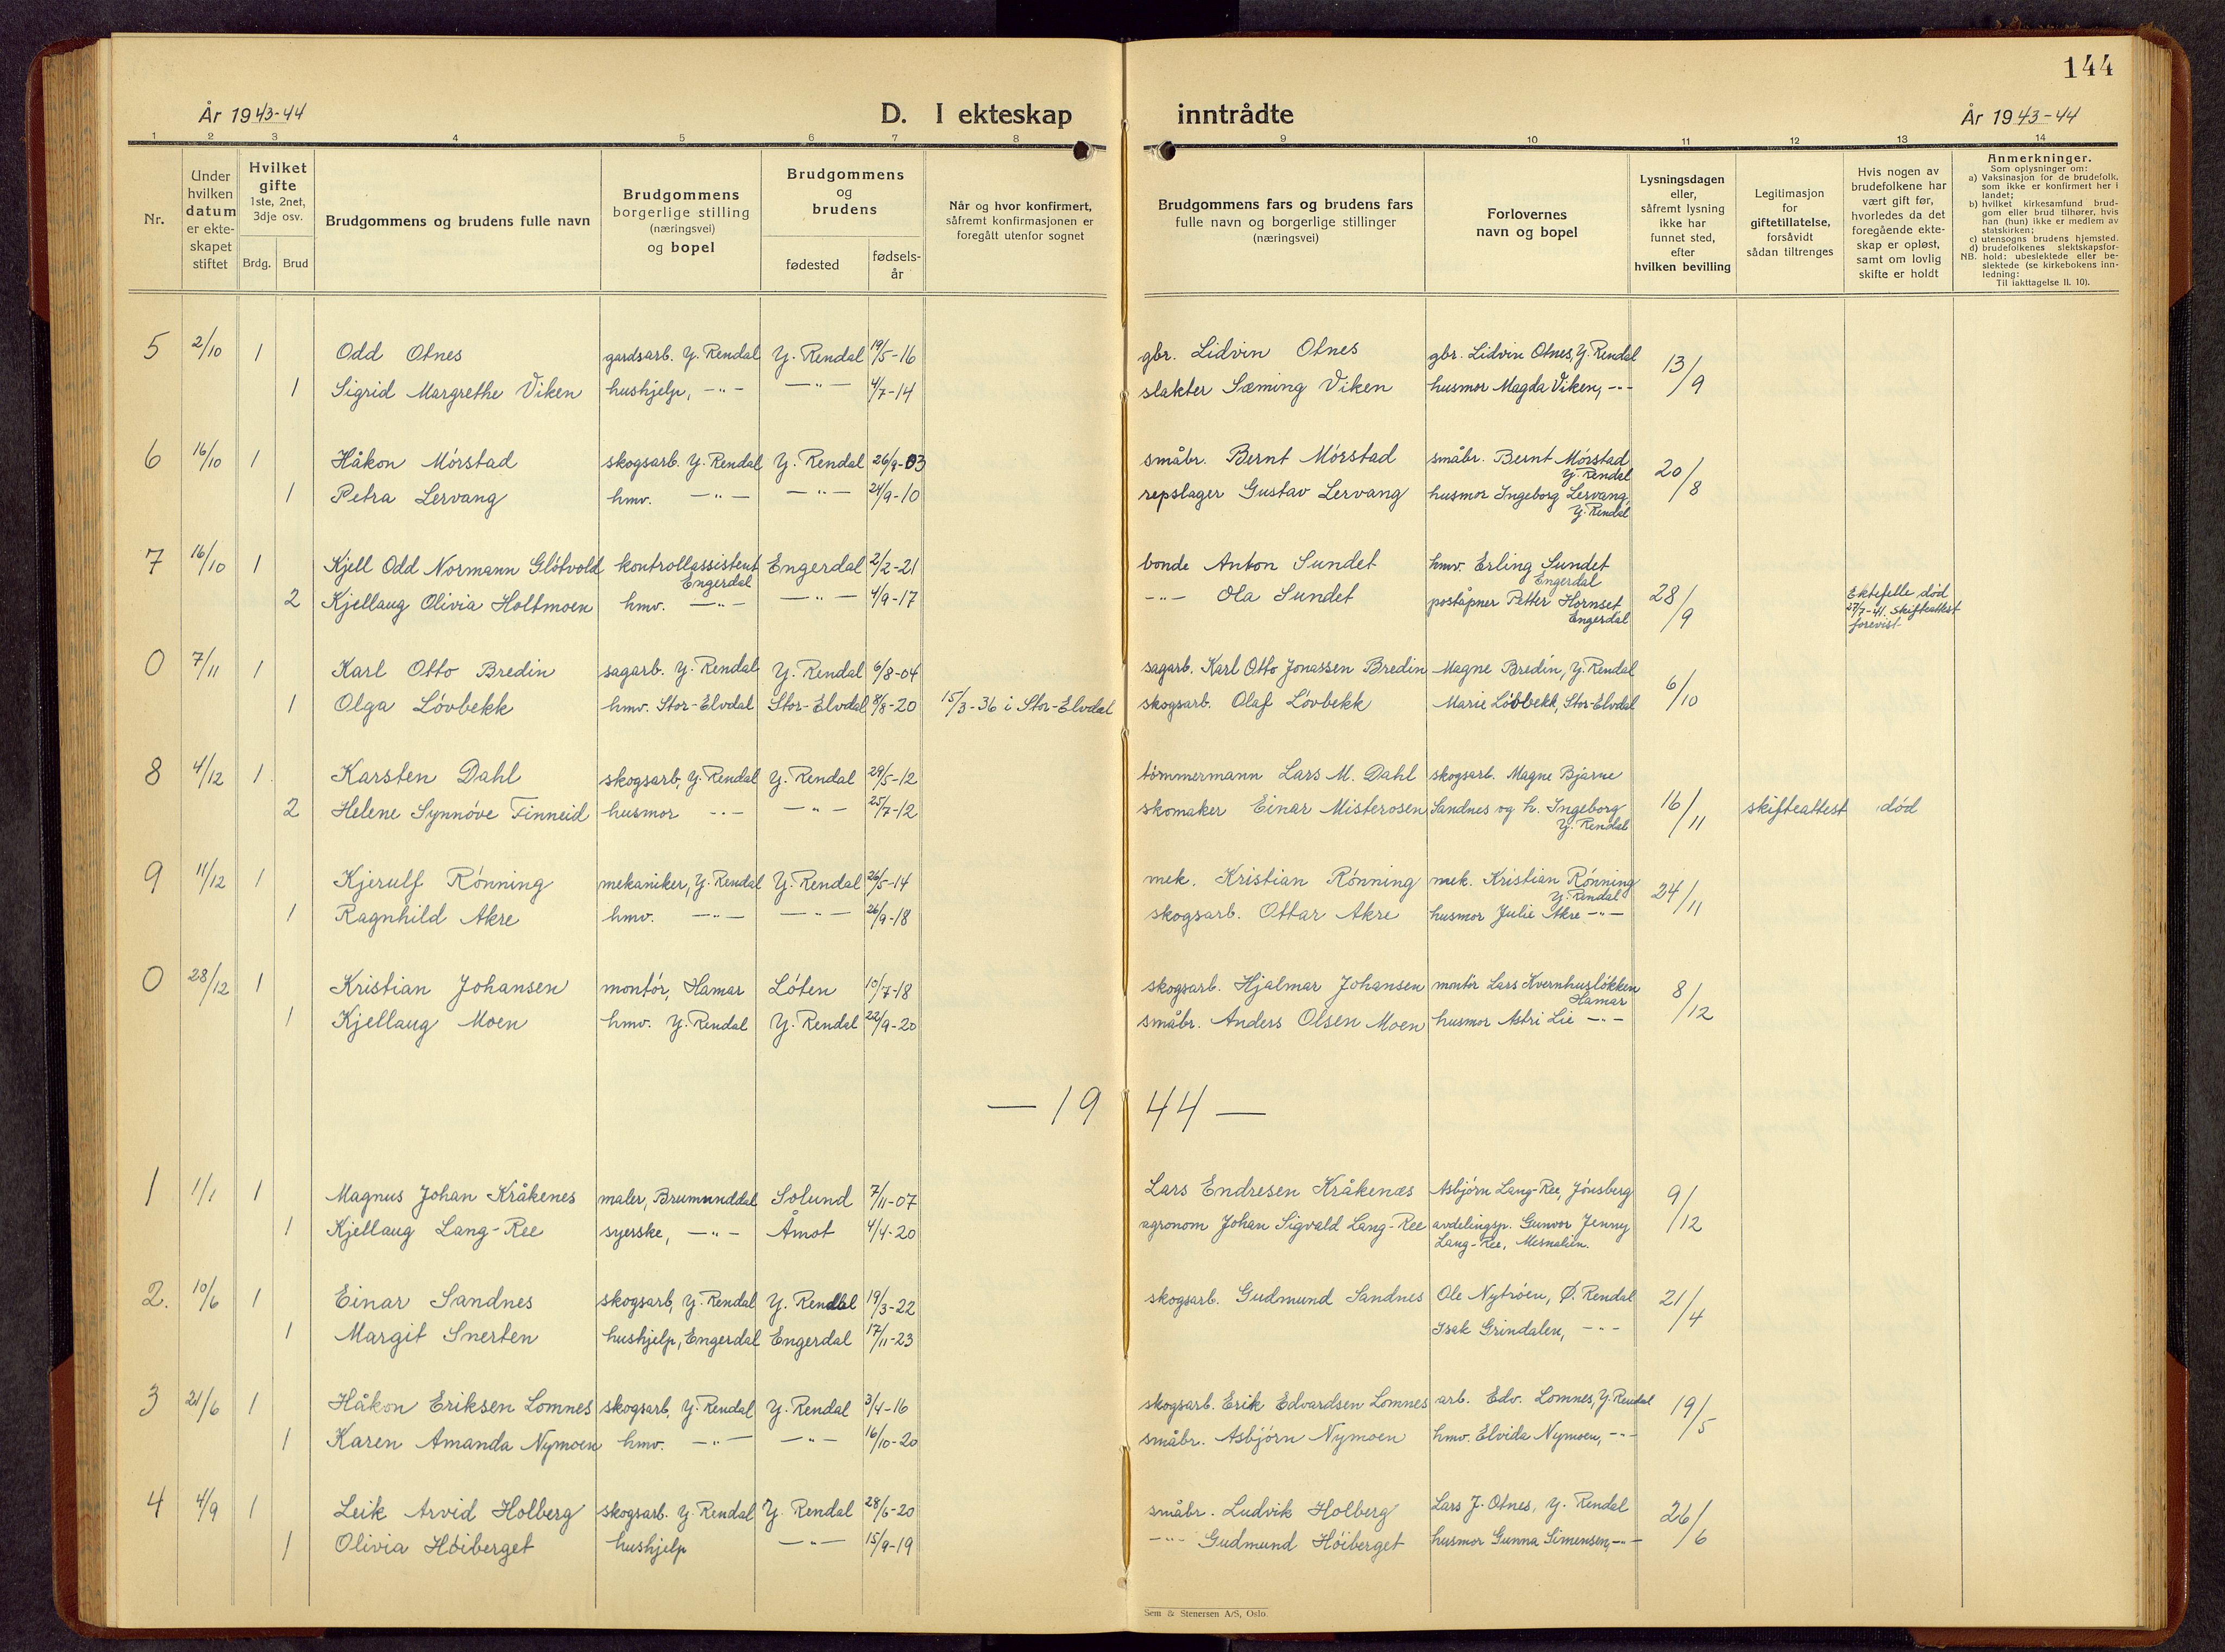 144
År 1943-44
D. I ekteskap inntrådte
År 1943-44
1 2 3 4 5 6 7 8 9 10 11 12 13 14
Nr.
Under
hvilken
datum
er ekte-
skapet
stiftet
Hvilket
gifte
1ste, 2net,
3dje osv.
Brdg. Brud
Brudgommens og brudens fulle navn
Brudgommens
borgerlige stilling
(næringsvei)
og bopel
Brudgommens
og
brudens
fødested
fødsels-
år
Når og hvor konfirmert,
såfremt konfirmasjonen er
foregått utenfor sognet
Brudgommens fars og brudens fars
fulle navn og borgerlige stillinger
(næringsvei)
Forlovernes
navn og bopel
Lysningsdagen
eller,
såfremt lysning
ikke har
funnet sted,
efter
hvilken bevilling
Legitimasjon
for
giftetillatelse,
forsåvidt
sådan tiltrenges
Hvis nogen av
brudefolkene har
vært gift før,
hvorledes da det
foregående ekte-
skap er opløst,
samt om lovlig
skifte er holdt
Anmerkninger.
Som oplysninger om:
a) Vaksinasjon for de brudefolk,
som ikke er konfirmert her i
landet;
b) hvilket kirkesamfund brud-
gom eller brud tilhører, hvis
han (hun) ikke er medlem av
statskirken;
c) utensogns brudens hjemsted.
d) brudefolkenes slektskapsfor-
NB. hold: ubeslektede eller be-
slektede (se kirkebokens inn-
ledning:
Til iakttagelse II. 10).
5 2/10 1 Odd Otnes gardsarb. Y. Rendal Y. Rendal 19/5-16 gbr. Lidvin Otnes gbr. Lidvin Otnes, Y. Rendal 13/9
1 Sigrid Margrethe Viken hushjelp, -"- -"- 4/7-14 slakter Sæming Viken husmor Magda Viken, -"-
6 16/10 1 Håkon Mórstad skogsarb. Y. Rendal Y. Rendal 26/9-03 småbr. Bernt Mórstad småbr. Bernt Mórstad
Y. Rendal 20/8
1 Petra Lervang hmv. -"- -"- 24/9-10 repslager Gustav Lervang husmor Ingeborg Lervang,
Y. Rendal
7 16/10 1 Kjell Odd Normann Glótvold kontrollassistent Engerdal 2/2-21 bonde Anton Sundet hmv. Erling Sundet
Engerdal Engerdal
2 Kjellaug Olivia Holtmoen hmv. -"- -"- 4/9-17 -"- Ola Sundet poståpner Petter Hornset 28/9 Ektefelle død
Engerdal 27/7-41. Skifteattest
forevist
0 7/11 1 Karl Otto Bredin sagarb. Y. Rendal Y. Rendal 6/8-04 sagarb. Karl Otto Jonassen Bredin Magne Bredin, Y. Rendal 6/10
1 Olga Lóvbekk hmv. Stor-Elvdal Stor-Elvdal 8/8-20 15/3-36 i Stor-Elvdal skogsarb. Olaf Lóvbekk Marie Lóvbekk, Stor-Elvdal
8 4/12 1 Karsten Dahl skogsarb, Y. Rendal Y. Rendal 29/5-12 tómmermann Lars M. Dahl skogsarb. Magne Bjarne
2 Helene Synnóve Finneid husmor -"- -"- 25/7-12 skomaker Einar Misterosen Sandnes og h. Ingeborg 16/11 skifteattest død
Y. Rendal
9 11/12 1 Kjerulf Rónning mekaniker, Y. Rendal Y. Rendal 26/5-14 mek. Kristian Rónning mek. Kristian Rónning
Y. Rendal 24/11
1 Ragnhild Akre hmv. -"- -"- 26/9-18 skogsarb. Ottar Akre husmor Julie Akre -"-
0 28/12 1 Kristian Johansen montór, Hamar Lóten 10/7-18 skogsarb. Hjalmar Johansen montór Lars Kvernhuslókken
Hamar 8/12
1 Kjellaug Moen hmv. Y. Rendal Y. Rendal 22/9-20 småbr. Anders Olsen Moen husmor Astri Lie -"-
— 1944 —
1 1/1 1 Magnus Johan Kråkenes maler, Brumunddal Solund 7/11-07 Lars Endresen Kråkenæs Asbjórn Lang-Ree, Jónsberg 9/12
1 Kjellaug Lang-Ree syerske, -"- Åmot 4/4-20 agronom Johan Sigvald Lang-Ree avdelingsp. Gunvor Jenny
Lang-Ree, Mesnalien.
2. 10/6 1 Einar Sandnes skogsarb, Y. Rendal Y. Rendal 19/3-22 skogsarb. Gudmund Sandnes Ole Nytróen, Ø. Rendal 21/4
1 Margit Snerten hushjelp, Engerdal Engerdal 17/11-23 Isak Grindalen, -"-
3 21/6 1 Håkon Eriksen Lomnes skogsarb, Y. Rendal Y. Rendal 3/4-16 skogsarb. Erik Edvardsen Lomnes arb. Edv. Lomnes, Y. Rendal 19/5
1 Karen Amanda Nymoen hmv. -"- -"- 16/10-20 småbr. Asbjórn Nymoen hmv. Elvida Nymoen, -"-
4 4/9 1 Leik Arvid Holberg skogsarb. Y. Rendal Y. Rendal 28/6-20 småbr. Ludvik Holberg Lars J. Otnes, Y. Rendal 26/6
1 Olivia Hóiberget hushjelp -"- 15/9-19 -"- Gudmund Hóiberget husmor Gunna Simensen, -"-
Sem & Stenersen A/S, Oslo.